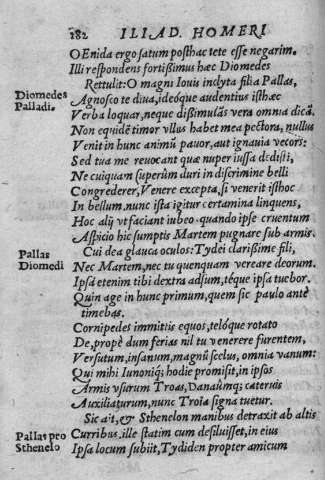 282 ILIAD. HOMERI
OEnida ergo satum posthac tete esse negarim.
Illi respondens fortissimus hæc Diomedes
Rettulit: O magni Iouis inclyta filia Pallas,
Diomedes Palladi.
Agnosco te diua, ideóque audentius isthæc
Verba loquar, neque dissimulãs vera omnia dicã.
Non equidẽ timor vllus habet mea pectora, nullus
Venit in hunc animũ pauor, aut ignauia vecors:
Sed tua me reuocant quæ nuper iussa dedisti,
Ne cuiquam superûm duri in discrimine belli
Congrederer, Venere excepta, si venerit isthoc
In bellum. nunc ista igitur certamina linquens,
Hoc alij vt faciant iubeo. quando ipse cruentum
Aspicio hîc sumptis Martem pugnare sub armis.
Cui dea glauca oculos: Tydei clarissime fili,
Pallas Diomedi
Nec Martem, nec tu quenquam vereare deorum.
Ipsa etenim tibi dextra adsum, téque ipsa tuebor.
Quin age in hunc primum, quem sic paulo antè
timebas.
Cornipedes immittis equos, telóque rotato
De, propè dum ferias nil tu venerere furentem,
Versutum, insanum, magnũ scelus, omnia vanum:
Qui mihi Iunoniq; hodie promisit, in ipsos
Armis vsurum Troas, Danaûmq; cateruis
Auxiliaturum, nunc Troia signa tuetur.
Sic ait, & Sthenelon manibus detraxit ab altis
Pallas pro Sthenelo
Curribus, ille statim cum desiluisset, in eius
Ipsa locum subiit, Tydiden propter amicum